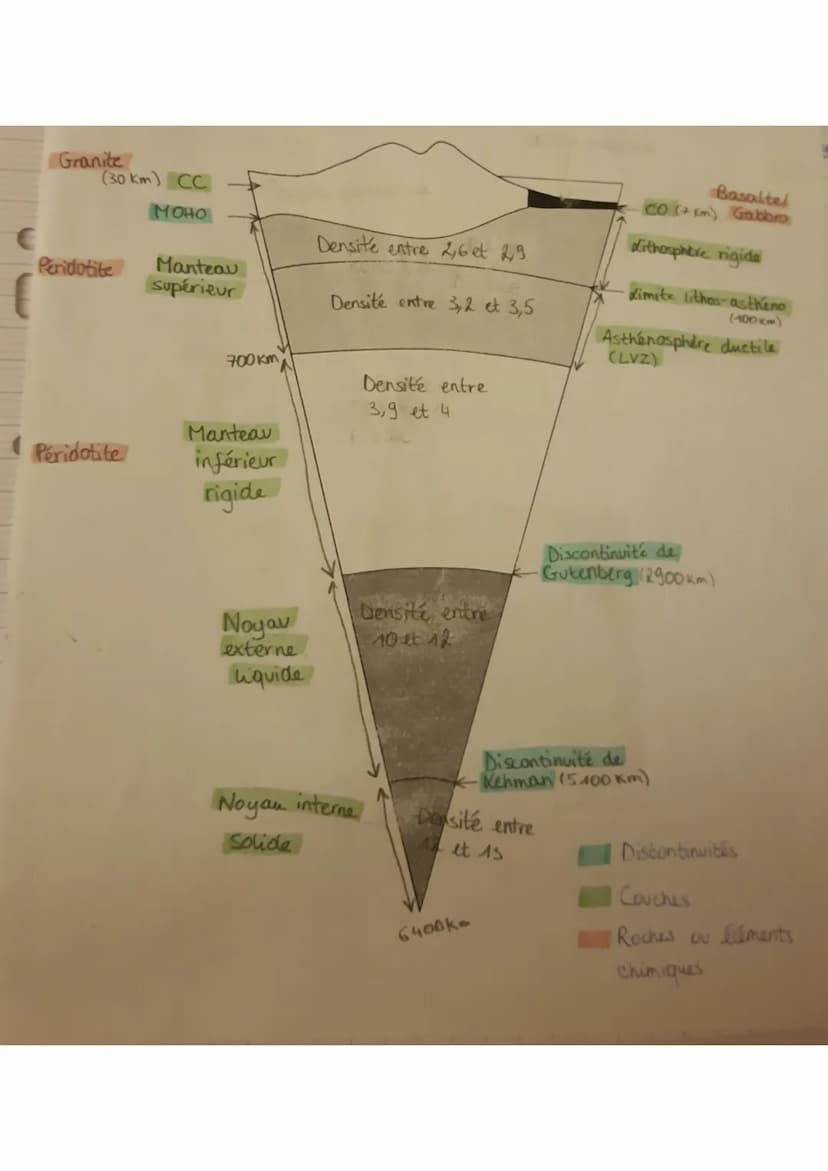 Granite
(30 km) CC
MOHO
Basalte/
CO (7 km) Gabbro
Densité entre 2,6 et 2,9
Lithosphère rigide
Péridotite
Manteau
supérieur
Densité entre 3,2 et 3,5
Limite lithos-asthéno
(100 km)
700 km
Asthénosphère ductile
(LVZ)
Densité entre
3,9 et 4
Péridotite
Manteau
inférieur
rigide
Discontinuité de
Gutenberg (2900 km)
Densité entre
10 et 12
Noyau
externe
liquide
Discontinuité de
Lehman (5100 km)
Noyau interne
solide
Densité entre
12 et 13
6400 km
Discontinuités
Couches
Roches ou éléments
chimiques